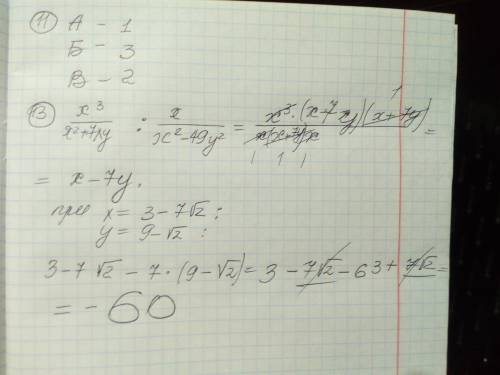 11) А - 1
Б - 3
В - 2
13) x³/(x²+7xy) : x/(x²-49y²) = x³·(x-7y)(x+7y)/(x(x+7y)x) =
1
1 1 1
= x-7y.
при x = 3-7√2 ;
y = 9-√2 ;
3-7√2 - 7·(9-√2) = 3 - 7√2 - 63 + 7√2 =
= -60